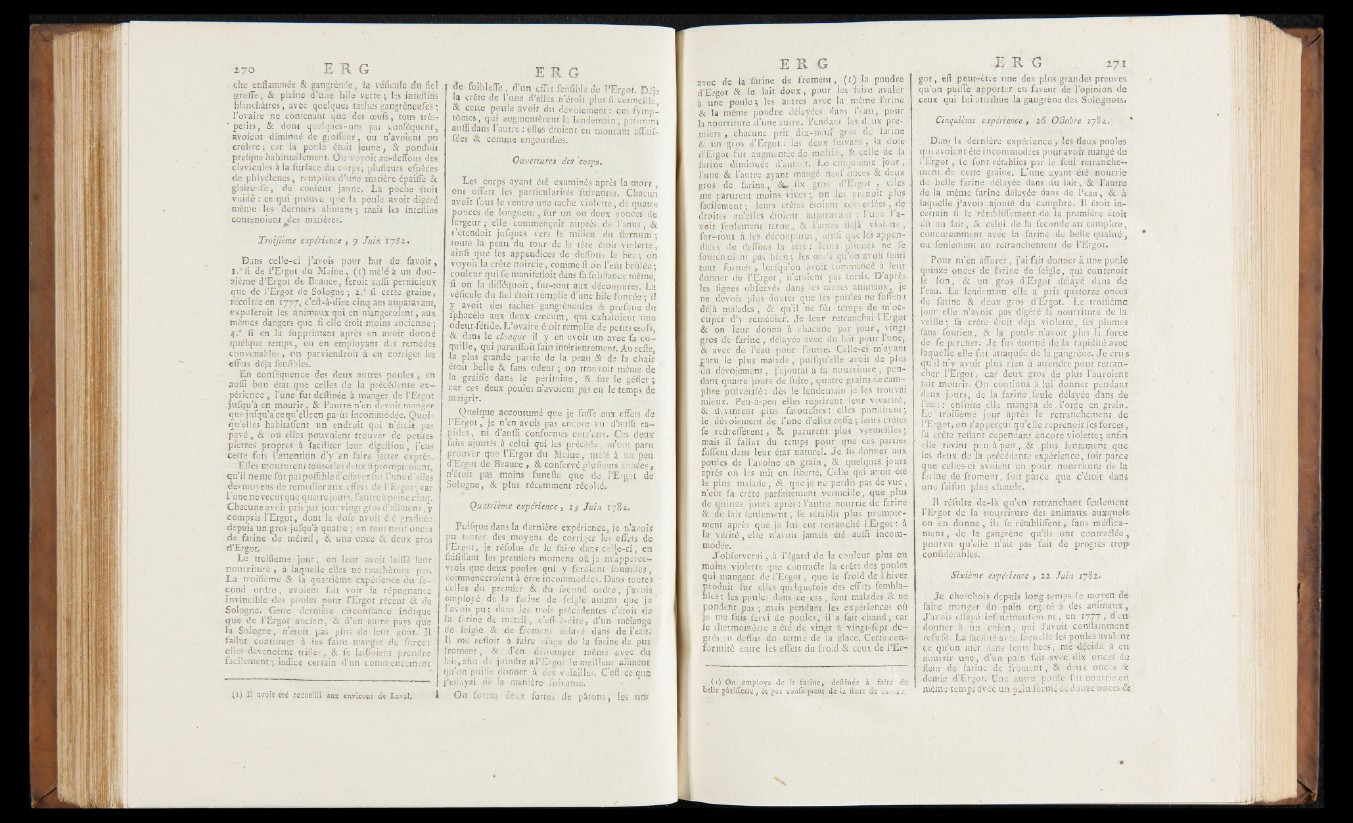 270 E R G
che enflammée & gangrènée, la véficule du fiel
groffe, & pleine d'une bile verte; les inteftins
blanchâtres, avec quelques taches gangréneufes;
l'ovaire ne contenant que des œufs, tous très-
petits, & dont quelques-uns par conféquent,
avoient diminué de groffeur, ou n'avoient pu
croître; car la poule étoit jeune, & pondoit
prefque habituellement. On voyoit au-deffous des
clavicules à la furface du corps, plufieurs efpèces
de phlyctenes, remplies d'une matière épaiffe &
glaireufe, de couleur jaune. La poche étoit
vuide: ce qui prouve que la poule avoit digéré
même les derniers alimens; mais les inteftins
contenoient des matières.
Troifième expérience, 9 Juin 1782.
Dans celle-ci j'avois pour but de favoir,
1.° fi de l'Ergot du Maine, (1) mêlé à un dou-
zième d'Ergot de Beauce, feroit auffi pernicieux
que de l'Ergot de Sologne; 2.° fi cette graine,
récoltée en 1777, c'eft-à-dire cinq ans auparavant,
expoferoit les animaux qui en mangeroient, aux
mêmes dangers que fi elle étoit moins ancienne;
3.° fi en la fupprimant après en avoir donné
quelque temps, ou en employant des remèdes
convenables, on parviendroit à en corriger les
effets déja fenfibles.
En conféquence des deux autres poules, en
auffi bon état que celles de la précédente ex-
périence, l'une fut deftinée à manger de l'Ergot
jufqu'à en mourir, & l'autre n'en devoit manger
que jufqu'à ce qu'elle en parût incommodée. Quoi-
qu'elles habitaffent un endroit qui n'étoit pas
pavé, & où elles pouvoient trouver de petites
pierres propres à faciliter leur digeftion, j'eus
cette fois l'attention d'y en faire jetter exprès.
Elles moururent toutes les deux fi promptement,
qu'il ne me fût pas poffible d'effayer fur l'une d'elles
des moyens de remédier aux effets de l'Ergot; car
l'une ne vecut que quatre jours, l'autre à peine cinq.
Chacune avoit pris par jour vingt gros d'alimens, y
compris l'Ergot, dont la dofe avoit été graduée
depuis un gros jufqu'à quatre; en tout neuf onces
de farine de méteil, & une once & deux gros
d'Ergot.
Le troifième jour, on leur avoit laiffé leur
nourriture, à laquelle elles ne touchèrent pas.
La troifième & la quatrième expérience du fe-
cond ordre, avoient fait voir la répugnance
invincible des poules pour l'Ergot récent & de
Sologne. Cette dernière circonftance indique
que de l'Ergot ancien, & d'un autre pays que
la Sologne, n'étoit pas plus de leur goût. Il
fallut continuer à les faire manger de force;
elles devenoient triftes, & fe laiffoient prendre
facilement; indice certain d'un commencement
(1) Il avoit été recueilli aux environs de Laval.
E R G
de foibleffe, d'un effet fenfible de l'Ergot. Déja
la crête de l'une d'elles n'étoit plus fi vermeille,
& cette poule avoit du dévoiement: ces fymp-
tômes, qui augmentèrent le lendemain, parurent
auffi dans l'autre: elles étoient en mourant affaif-
fées & comme engourdies.
Ouvertures des corps.
Les corps ayant été examinés après la mort,
ont offert les particularités fuivantes. Chacun
avoit fous le ventre une tache violette, de quatre
pouces de longueur, fur un ou deux pouces de
largeur; elle commençoit auprès de l'anus, &
s'étendoit jufques vers le milieu du fternum;
toute la peau du tour de la tête étoit violette,
ainfi que les appendices de deffous le bec; on
voyoit la crête noircie, comme fi on l'eût brûlée;
couleur qui fe manifeftoit dans fa fubftance même,
fi on la difféquoit, fur-tout aux découpures. La
véficule du fiel étoit remplie d'une bile foncée; il
y avoit des taches gangréneufes & prefque du
fphacèle aux deux cœcum, qui exhaloient une
odeur fétide. L'ovaire étoit remplie de petits œufs,
& dans le cloaque il y en avoit un avec fa co-
quille, qui paroiffoit fain intérieurement. Au refte,
la plus grande partie de la peau & de la chair
étoit belle & fans odeur; on trouvoit même de
la graiffe dans le péritoine, & fur le géfier;
car ces deux poules n'avoient pas eu le temps de
maigrir.
Quelque accoutumé que je fuffe aux effets de
l'Ergot, je n'en avois pas encore vu d'auffi ra-
pides, ni d'auffi conformes entr'eux. Ces deux
faits ajoutés à celui qui les précède, m'ont paru
prouver que l'Ergot du Maine, mêlé à un peu
d'Ergot de Beauce, & confervé plufieurs années,
n'étoit pas moins funefte que de l'Ergot de
Sologne, & plus récemment récolté.
Quatrième expérience, 15 Juin 1782.
Puifque dans la dernière expérience, je n'avois
pu tenter des moyens de corriger les effets de
l'Ergot, je réfolus de le faire dans celle-ci, en
faififfant les premiers momens où je m'appercer-
vrois que deux poules qui y feroient foumifes,
commenceroient à être incommodées. Dans toutes
celles du premier & du fecond ordre, j'avois
employé de la farine de feigle autant que je
l'avois pu; dans les trois précédentes c'étoit de
la farine de méteil, c'eft-à-dire, d'un mélange
de feigle & de froment délayé dans de l'eau.
Il me reftoit à faire ufage de la farine de pur
froment, & d'en détremper même avec du
lait, afin de joindre à l'Ergot le meilleur aliment
qu'on puiffe donner à des volailles. C'eft ce que
j'effayai de la manière fuivante.
On forma deux fortes de pâtons, les uns
E R G
avec de la farine de froment, (1) la poudre
d'Ergot & le lait doux, pour les faire avaler
à une poule; les autres avec la même farine
& la même poudre délayées dans l'eau, pour
la nourriture d'une autre. Pendant les deux pre-
miers, chacune prit dix-neuf gros de farine
& un gros d'Ergot: les deux fuivans, la dofe
d'Ergot fut augmentée de moitié, & celle de la
farine diminuée d'autant. Le cinquième jour,
l'une & l'autre ayant mangé neuf onces & deux
gros de farine, & fix gros d'Ergot, elles
me parurent moins vives; on les prenoit plus
facilement; leurs crêtes étoient renverfées, de
droites qu'elles étoient auparavant: l'une l'a-
voit feulement terne, & l'autre déjà violette,
fur-tout à fes découpures, ainfi que les appen-
dices de deffous la tête: leurs plumes ne fe
foutenoient pas bien; les œufs qu'on avoit fenti
tout formés, lorfqu'on avoit commencé à leur
donner de l'Ergot, n'étoient pas fortis. D'après
les fignes obfervés dans les autres animaux, je
ne devois plus douter que les poules ne fuffent
déjà malades, & qu'il ne fût temps de m'oc-
cuper d'y remédier. Je leur retranchai l'Ergot
& on leur donna à chacune par jour, vingt
gros de farine, délayée avec du lait pour l'une,
& avec de l'eau pour l'autre. Celle-ci m'ayant
paru le plus malade, puifqu'elle avoit de plus
du dévoiement, j'ajoutai à fa nourriture, pen-
dant quatre jours de fuite, quatre grains de cam-
phre pulvérifé: dès le lendemain je les trouvai
mieux. Peu-à-peu elles reprirent leur vivacité,
& devinrent plus farouches: elles pondirent;
le dévoiement de l'une d'elles ceffa; leurs crêtes
fe redrefferent, & parurent plus vermeilles;
mais il fallut du temps pour que ces parties
fuffent dans leur état naturel. Je fis donner aux
poules de l'avoine en grain, & quelques jours
après on les mit en liberté. Celle qui avoit été
le plus malade, & que je ne perdis pas de vue,
n'eut fa crête parfaitement vermeille, que plus
de quinze jours après: l'autre nourrie de farine
& de lait feulement, fe rétablit plus prompte-
ment après que je lui eus retranché l'Ergot: à
la vérité, elle n'avoit jamais été auffi incom-
modée.
J'obferverai, à l'égard de la couleur plus ou
moins violette que contracte la crête des poules
qui mangent de l'Ergot, que le froid de l'hiver
produit fur elles quelquefois des effets fembla-
bles: les poules dans ce cas, font malades & ne
pondent pas; mais pendant les expériences où
je me fuis fervi de poules, il a fait chaud, car
le thermomètre a été de vingt à vingt-fept de-
grés au deffus du terme de la glace. Cette con-
formité entre les effets du froid & ceux de l'Er-
(1) On employa de la farine, deftinée à faire de
belle pâtifferie, & par conféquent de la fleur de farine.
E R G 271
got, eft peut-être une des plus grandes preuves
qu'on puiffe apporter en faveur de l'opinion de
ceux qui lui attribue la gangrène des Solognots.
Cinquième expérience, 26 Octobre 1782.
Dans la dernière expérience, les deux poules
qui avoient été incommodées pour avoir mangé de
l'Ergot, fe font rétablies par le feul retranche-
ment de cette graine. L'une ayant été nourrie
de belle farine délayée dans du lait, & l'autre
de la même farine délayée dans de l'eau, & à
laquelle j'avois ajouté du camphre. Il étoit in-
certain fi le rétabliffement de la première étoit
dû au lait, & celui de la feconde au camphre,
concurremment avec la farine de belle qualité,
ou feulement au retranchement de l'Ergot.
Pour m'en affurer, j'ai fait donner à une poule
quinze onces de farine de feigle, qui contenoit
le fon, & un gros d'Ergot délayé dans de
l'eau. Le lendemain elle a pris quatorze onces
de farine & deux gros d'Ergot. Le troifième
jour elle n'avoit pas digéré la nourriture de la
veille; fa crête étoit déja violette, fes plumes
fans foutien, & la poule n'avoit plus la force
de fe percher. Je fus étonné de la rapidité avec
laquelle elle fut attaquée de la gangrène. Je crus
qu'il n'y avoit plus rien à attendre pour retran-
cher l'Ergot, car deux gros de plus l'auroient
fait mourir. On continua à lui donner pendant
deux jours, de la farine feule délayée dans de
l'eau: enfuite elle mangea de l'orge en grain.
Le troifième jour après le retranchement de
l'Ergot, on s'apperçut qu'elle reprenoit fes forces,
fa crête reftant cependant encore violette; enfin
elle revint peu à peu, & plus lentement que
les deux de la précédente expérience, foit parce
que celles-ci avoient eu pour nourriture de la
farine de froment, foit parce que c'étoit dans
une faifon plus chaude.
Il réfulte de-là qu'en retranchant feulement
l'Ergot de la nourriture des animaux auxquels
on en donne, ils fe rétabliffent, fans médica-
ment, de la gangrène qu'ils ont contractée,
pourvu qu'elle n'ait pas fait de progrès trop
confidérables.
Sixième expérience, 22 Juin 1782.
Je cherchois depuis long-temps le moyen de
faire manger du pain ergoté à des animaux,
J'avois effayé infructueufement, en 1777, d'en
donner à un chien, qui l'avoit conftamment
refufé. La facilité avec laquelle les poules avalent
ce qu'on met dans leurs becs, me décida à en
nourrir une, d'un pain fait avec dix onces de
fleur de farine de froment, & deux onces &
demie d'Ergot. Une autre poule fut nourrie en
même temps avec un pain formé de douze onces &